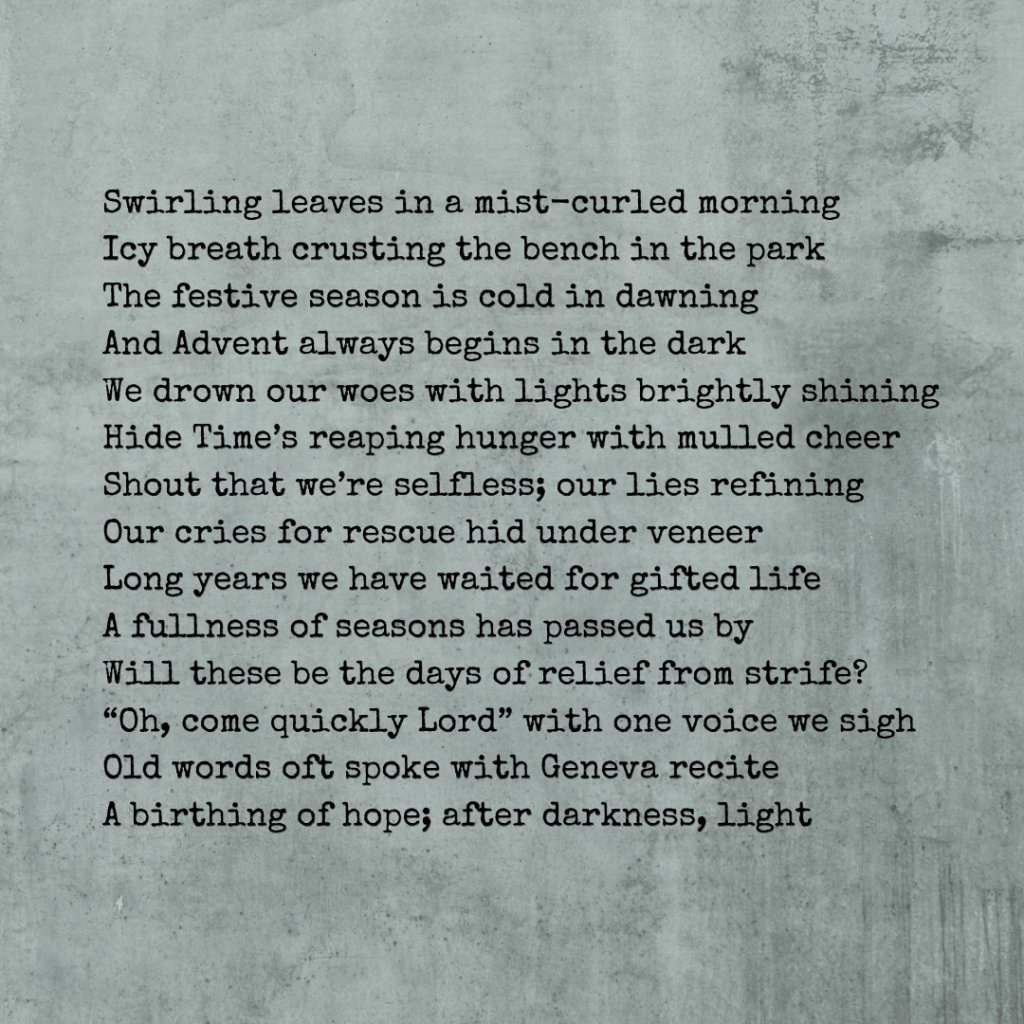 Swirling leaves in a mist-curled morning
Icy breath crusting the bench in the park
The festive season is cold in dawning
And Advent always begins in the dark
We drown our woes with lights brightly shining
Hide Time’s reaping hunger with mulled cheer
Shout that we’re selfless; our lies refining
Our cries for rescue hid under veneer
Long years we have waited for gifted life
A fullness of seasons has passed us by
Will these be the days of relief from strife?
“Oh, come quickly Lord” with one voice we sigh
Old words oft spoke with Geneva recite
A birthing of hope; after darkness, light